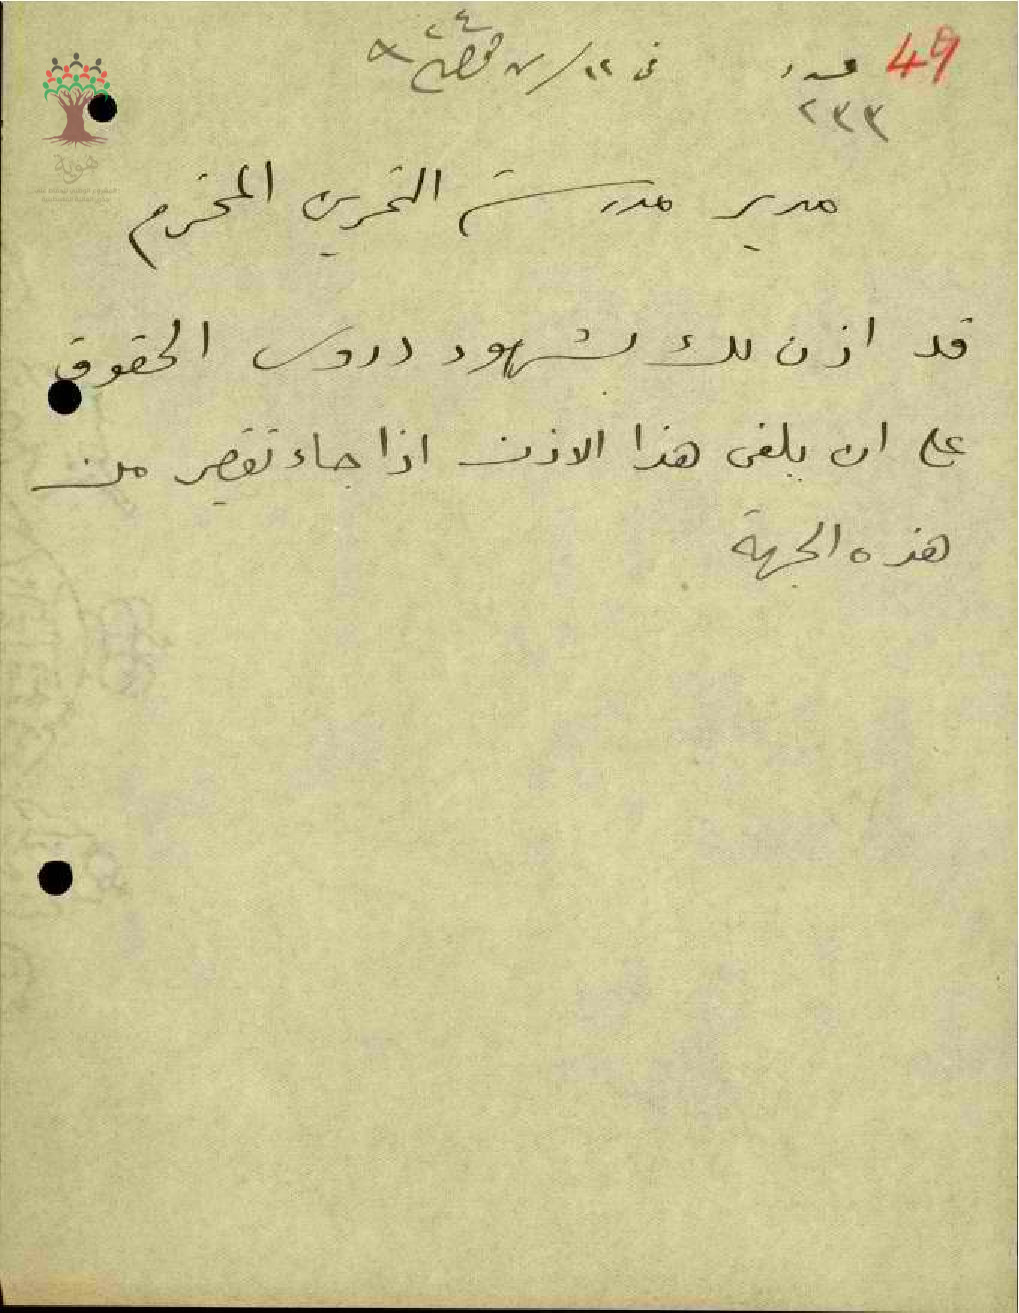 49
عدد
٢٣٣
في ٢٢/٧
مدير مدرسة التمرين المحترم
قد اذن لك بشهود دروس الحقوق
على ان يلغى هذا الاذن اذا جاء تقصير من
هذه الجهة
هوية